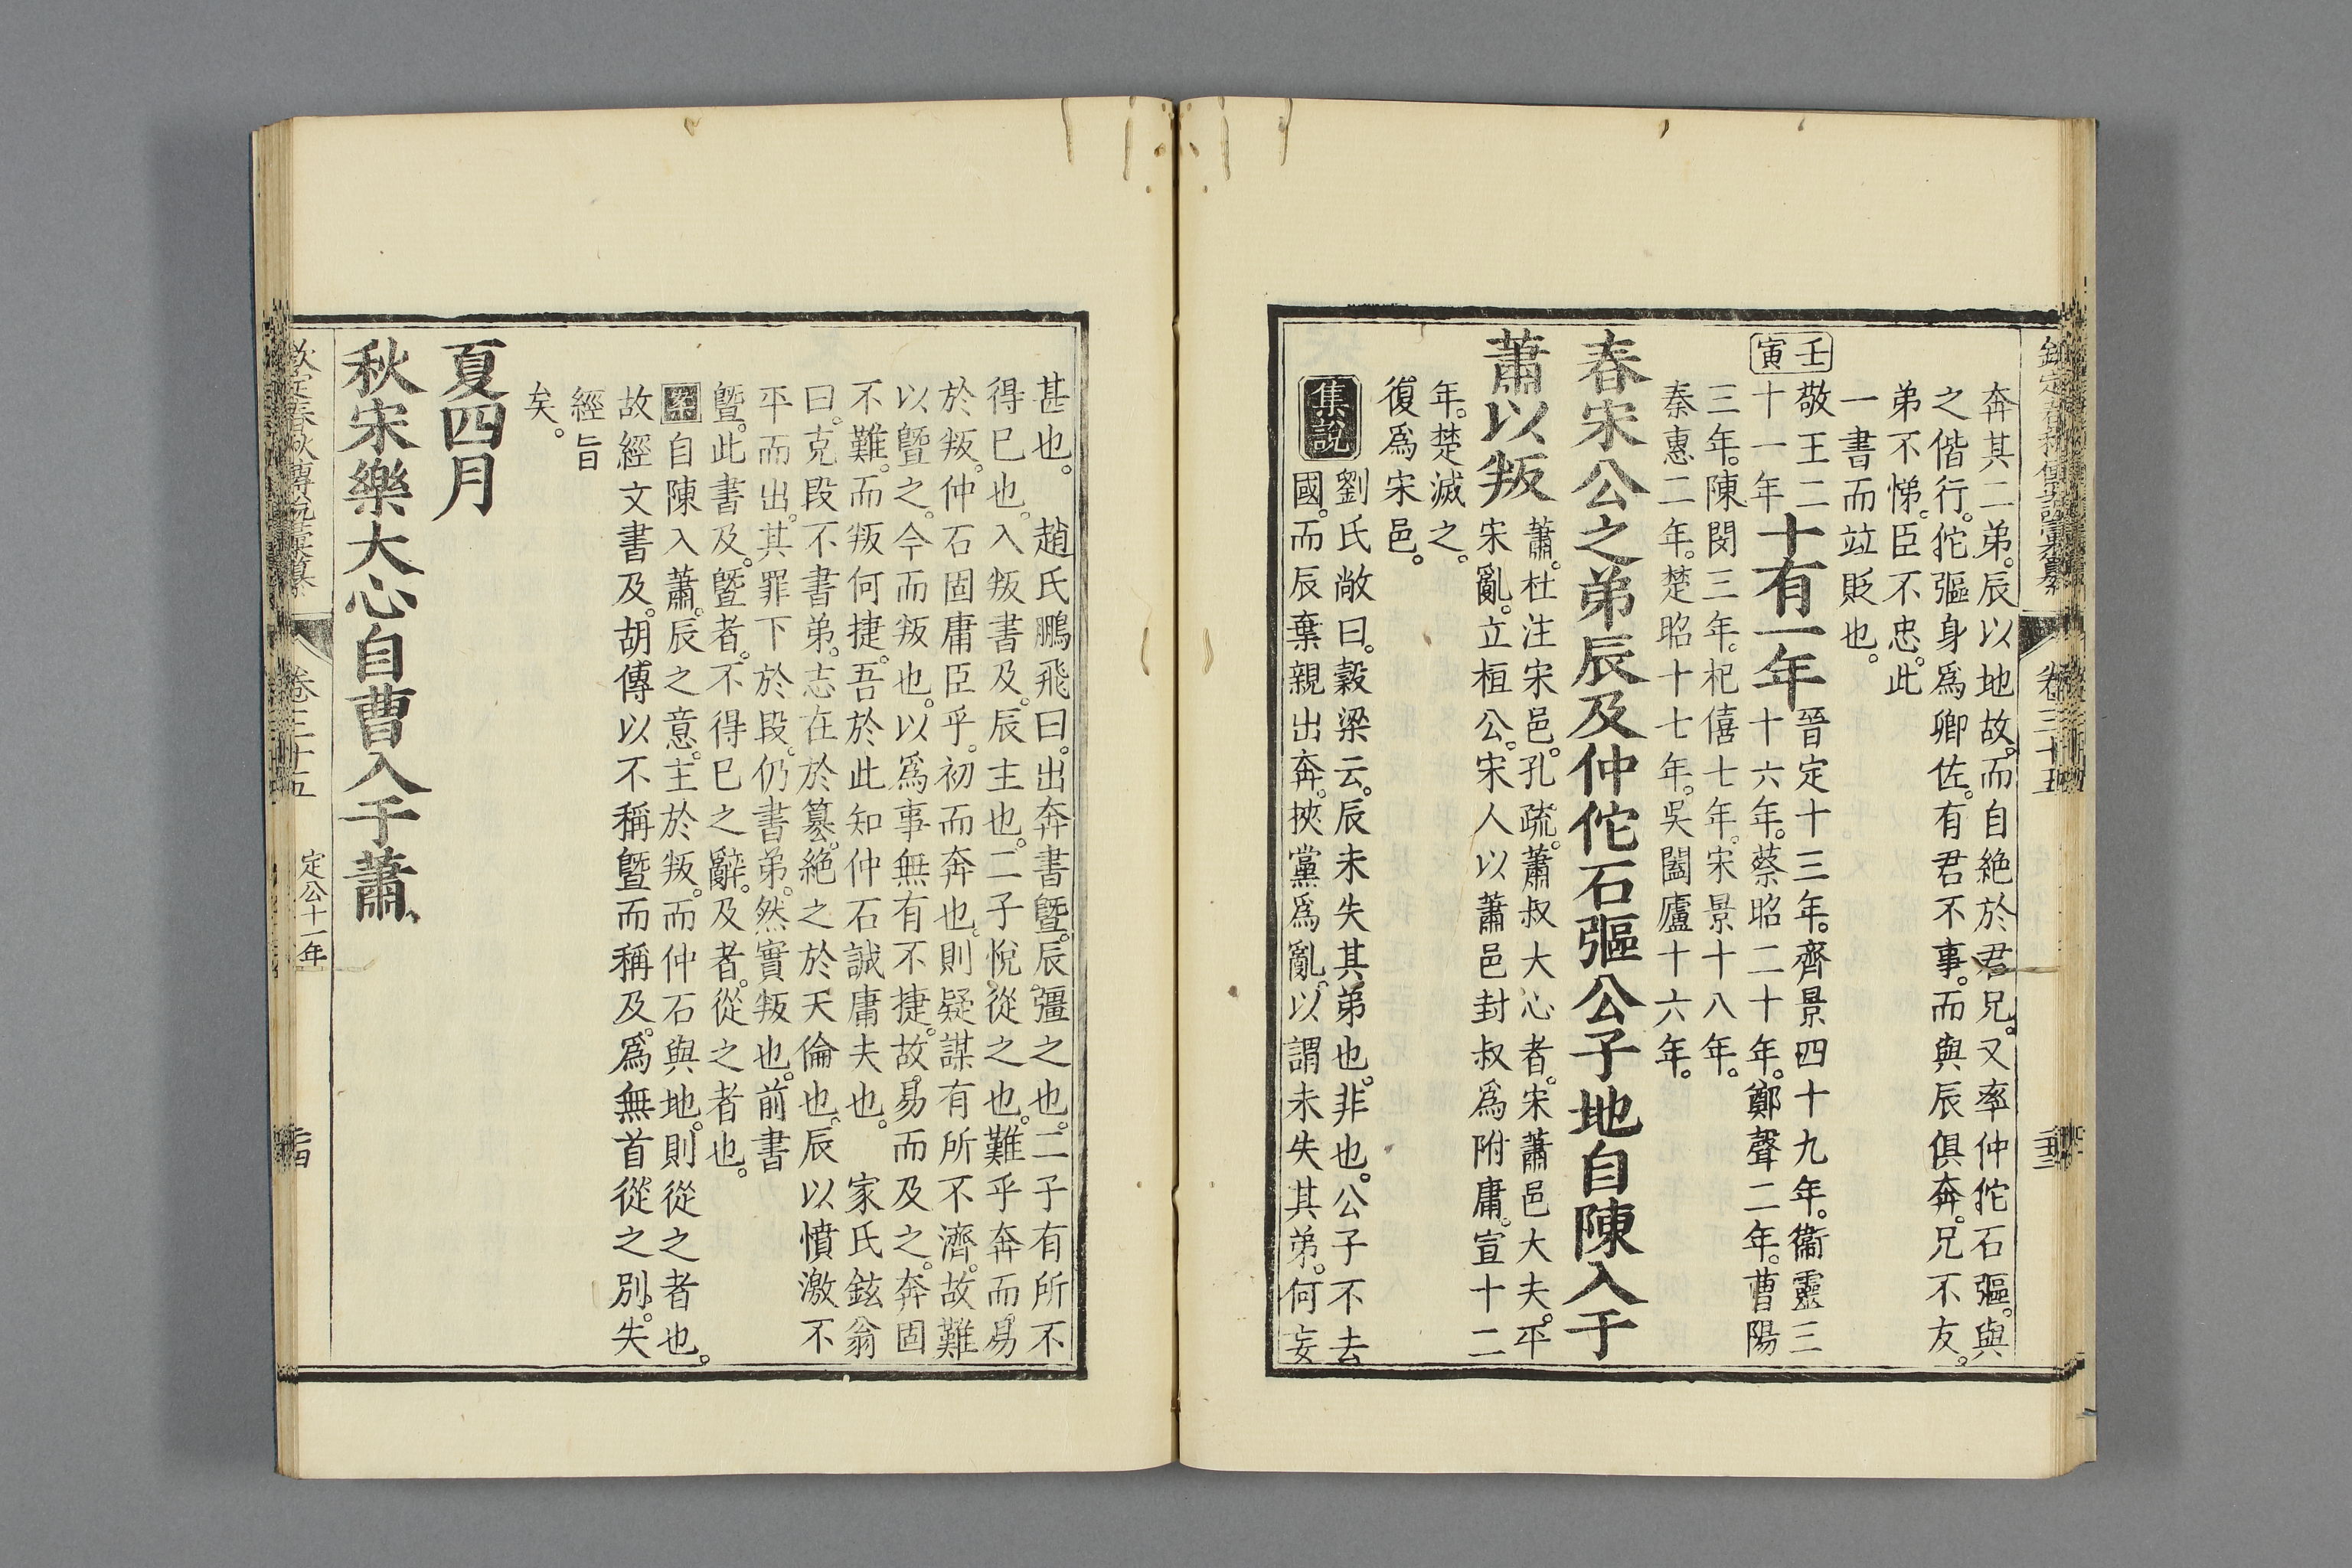 欽定春秋傳說彙纂 卷三十五
奔其二弟。辰以地故。而自絕於君兄。又率仲佗石彄。與
之偕行。佗彄身爲卿佐。有君不事。而與辰俱奔。兄不友。
弟不悌。臣不忠。此
一書而竝貶也。
壬寅
敬王二
十一年
十有一年
晉定十三年。齊景四十九年。衞靈三
十六年。蔡昭二十年。鄭聲二年。曹陽
三年。陳閔三年。杞僖七年。宋景十八年。
秦惠二年。楚昭十七年。吳闔廬十六年。
春宋公之弟辰及仲佗石彄公子地自陳入于
蕭以叛
蕭。杜注宋邑。孔疏。蕭叔大心者。宋蕭邑大夫。平
宋亂。立桓公。宋人以蕭邑封叔爲附庸。宣十二
年。楚滅之。
復爲宋邑。
集說
劉氏敞曰。穀梁云。辰未失其弟也。非也。公子不去
國。而辰棄親出奔。挾黨爲亂。以謂未失其弟。何妄
甚也。 趙氏鵬飛曰。出奔書曁。辰彊之也。二子有所不
得已也。入叛書及。辰主也。二子悅從之也。難乎奔而易
於叛。仲石固庸臣乎。初而奔也。則疑謀有所不濟。故難
以曁之。今而叛也。以爲事無有不捷。故易而及之。奔固
不難。而叛何捷。吾於此知仲石誠庸夫也。 家氏鉉翁
曰。克段不書弟。志在於簒。絕之於天倫也。辰以憤激不
平而出。其罪下於段。仍書弟。然實叛也。前書
曁。此書及。曁者。不得已之辭。及者。從之者也。
案自陳入蕭。辰之意。主於叛。而仲石與地。則從之者也。
故經文書及。胡傳以不稱曁而稱及。爲無首從之別。失
經旨
矣。
夏四月
秋宋樂大心自曹入于蕭
欽定春秋傳說彙纂 卷三十五 定公十一年